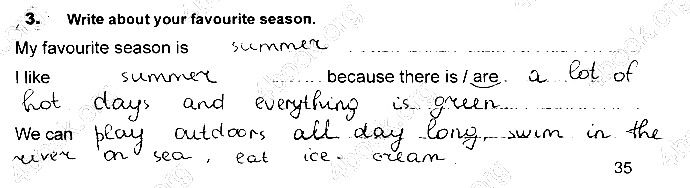 3. Write about your favourite season.
My favourite season is summer
I like summer because there is / are a lot of
hot days and everything is green
We can play outdoors all day long, swim in the
river on sea, eat ice-cream.
35